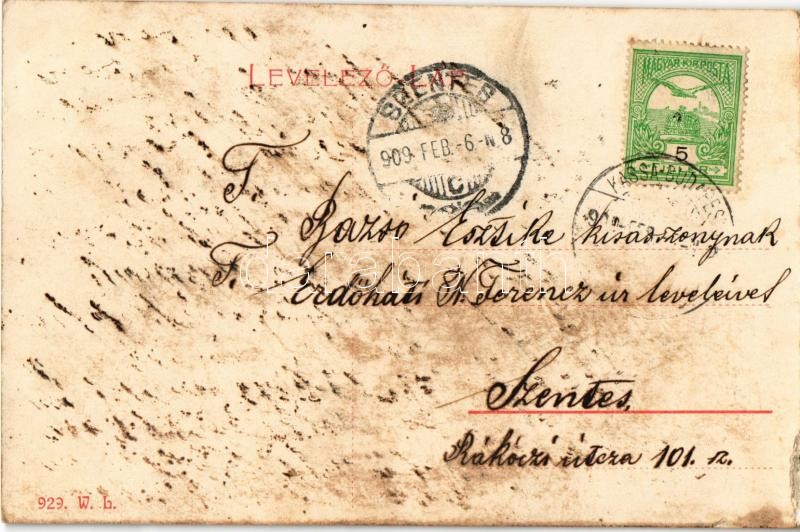 LEVELEZŐ LAP
MAGYAR KIR. POSTA
5
SZENTES
909 FEB. -6. N 8
C
KASSA-BUDAPES
T. Bazsó Esztike kisasszonynak
T. Erdőháti N. Ferencz úr levelével
darabanth
Szentes,
Rákóczi útcza 101. sz.
929. W. L.